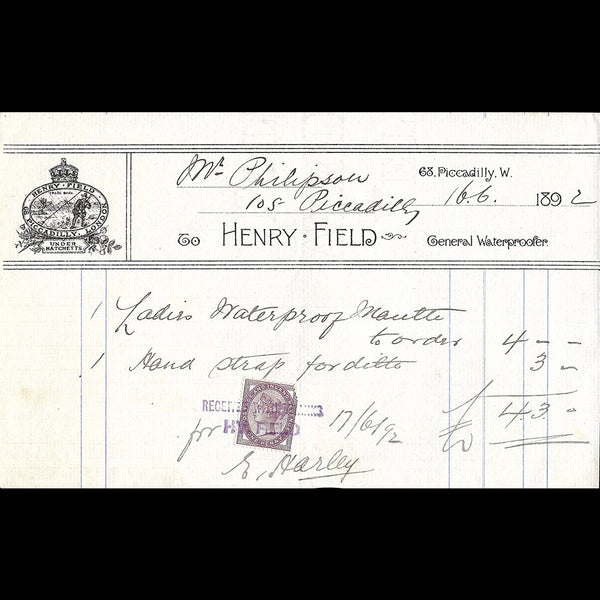 HENRY · FIELD
TRADE MARK
63 PICCADILLY. LONDON
UNDER
HATCHETTS
Mr Philipson
63, Piccadilly, W.
105 Piccadilly
16.6. 1892
To HENRY · FIELD
General Waterproofer
1 Ladies Waterproof Mantle
to order 4 – –
1 Hand strap for ditto 3 –
£ 4 3 –
RECEIVED WITH THANKS
HY FIELD
for 17/6/92
E. Harley